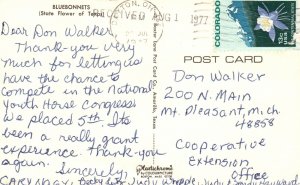 BLUEBONNETS
(State Flower of Texas)
Dear Don Walker,
Thank-you very
much for letting us
have the chance to
compete in the National
Youth Horse Congress
we placed 5th. Its
been a really grant
experience. Thank-you
again.
Sincerely,
RECEIVED AUG 1
1977
COLORADO
POST CARD
Don Walker
200 N. MAIN
Mt. Pleasant, Mich
48858
Cooperative
Extension
Office
Plastichrome
by COLOURPICTURE
Judy